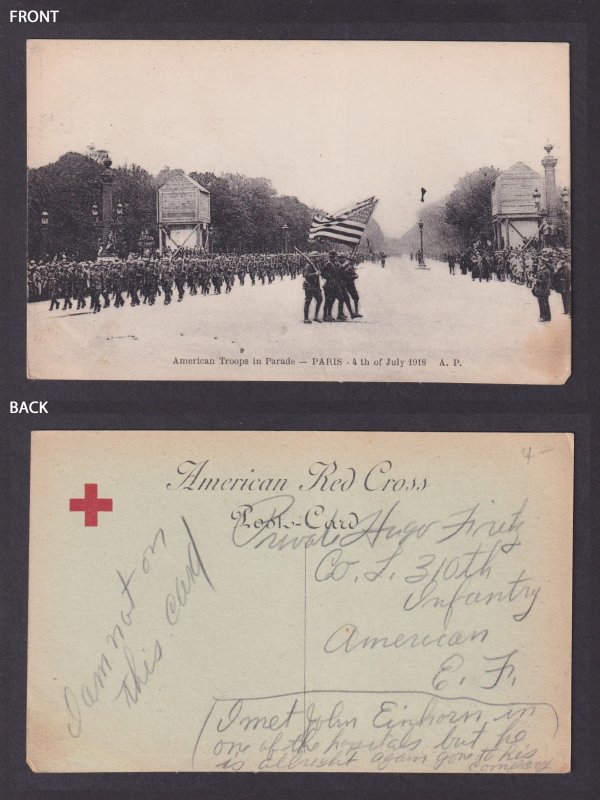 FRONT
American Troops in Parade — PARIS - 4 th of July 1918 A. P.
BACK
4-
American Red Cross
Post-Card
Private Hugo
Co. L. 310th
Infantry
American
E. F.
I am not on
this card
I met John Einhorn, in
one of the hospitals but he
is allright again gone to his
company